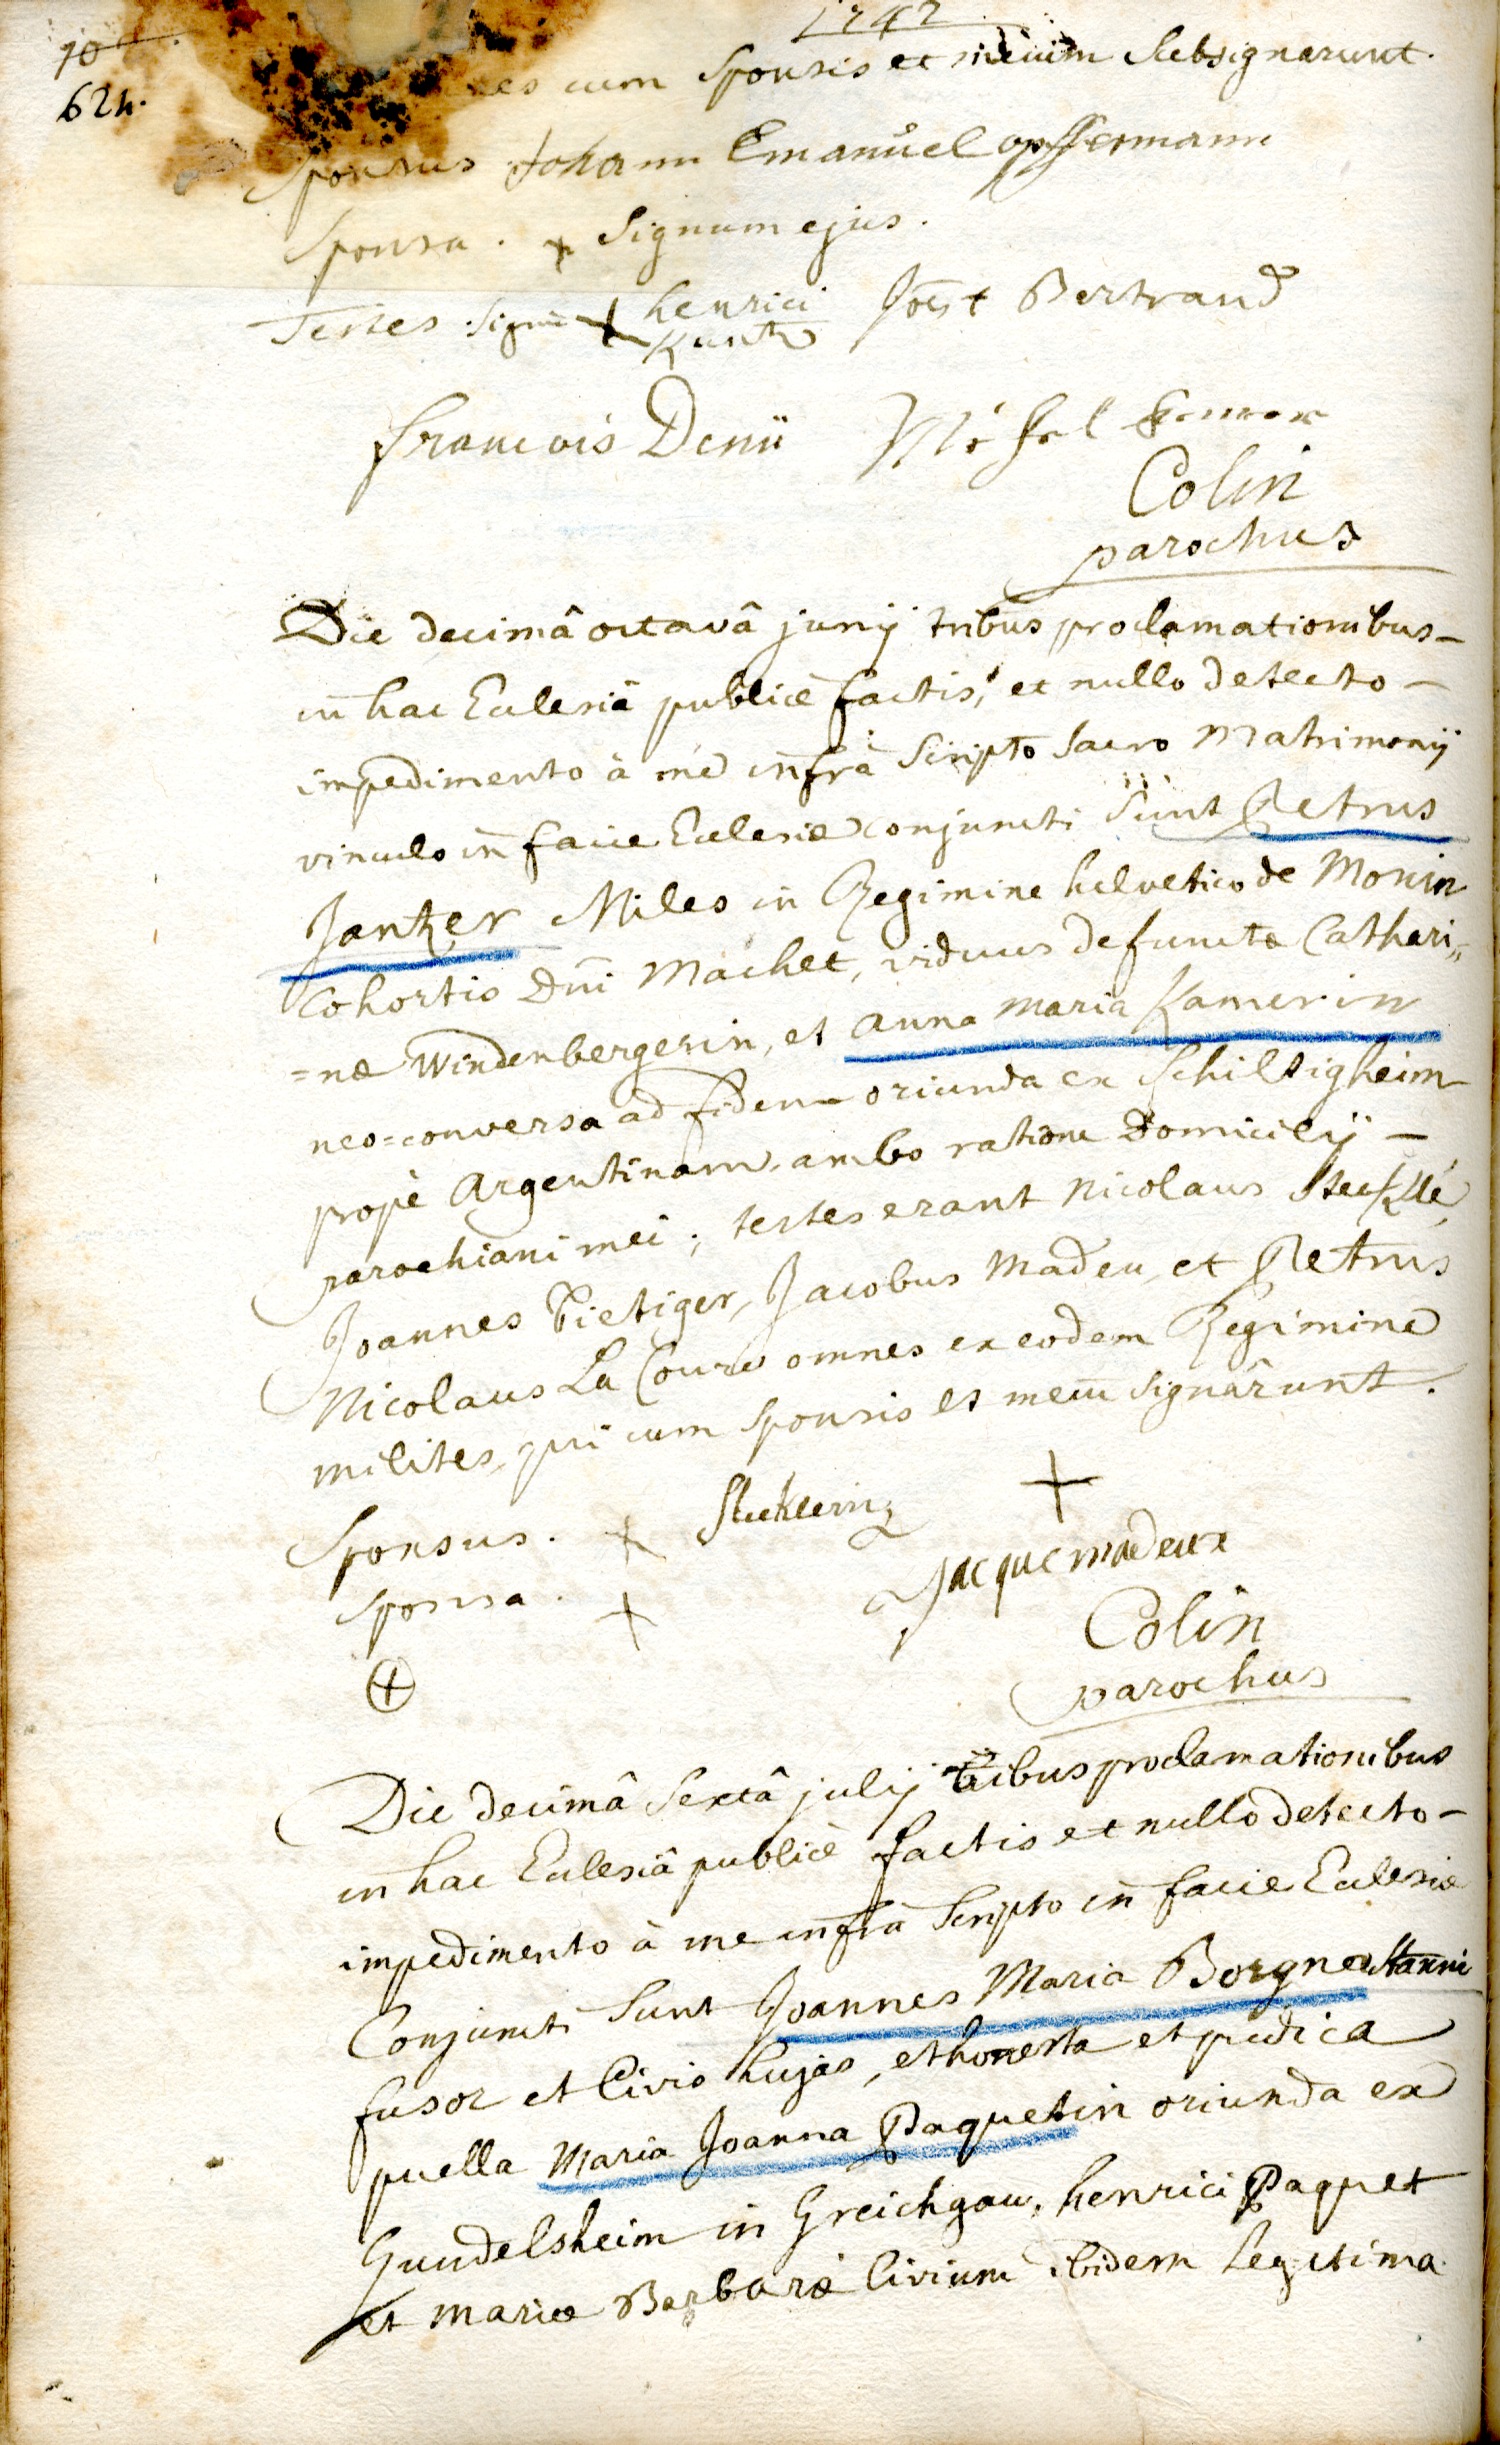 1747
624.
cum Sponsis et mecum Subsignarunt.
Sponsus Johann Emanuel opffermann
Sponsa. + Signum ejus.
Testes Signū + henrici Kuntz Jost Bertrand
francois Denü Michel
Colin
parochus
Die decimâ octavâ junÿ tribus proclamationibus -
in hac Eclesiâ publicè factis, et nullo detecto -
impedimento à me infrà Scripto Sacro MatrimonÿÏ
vinculo in facie Eclesiæ conjuncti Sunt Petrus
Jantzer Miles in Regimine helvetico de Monin
Cohortis Dni Machet, viduus defunctæ Cathari„
=næ Windenbergerin, et anna maria Kamerin
neo=conversa ad fidem oriunda ex Schiltigheim
propè Argentinam, ambo ratione Domicilÿ -
parochiani mei; testes erant Nicolaus Stecklé,
Joannes Tietiger, Jacobus Madeu, et Petrus
Nicolaus La Coure omnes ex eodem Regimine
milites, qui cum Sponsis et mecū signârunt.
Sponsus. + +
Sponsa. + Jacque madeux
Colin
parochus
Die decimâ Sextâ julÿ tribus proclamationibus
in hac Eclesiâ publicè factis et nullo detecto -
impedimento à me infrà Scripto in facie Eclesiæ
Conjuncti Sunt Joannes Maria Borgne Stanni
fusor et Civis hujas, et honesta et pudica
puella Maria Joanna Paquetin oriunda ex
Gundelsheim in Greichgau, henrici Paquet
et mariæ Barbaræ Civium ibidem legitima